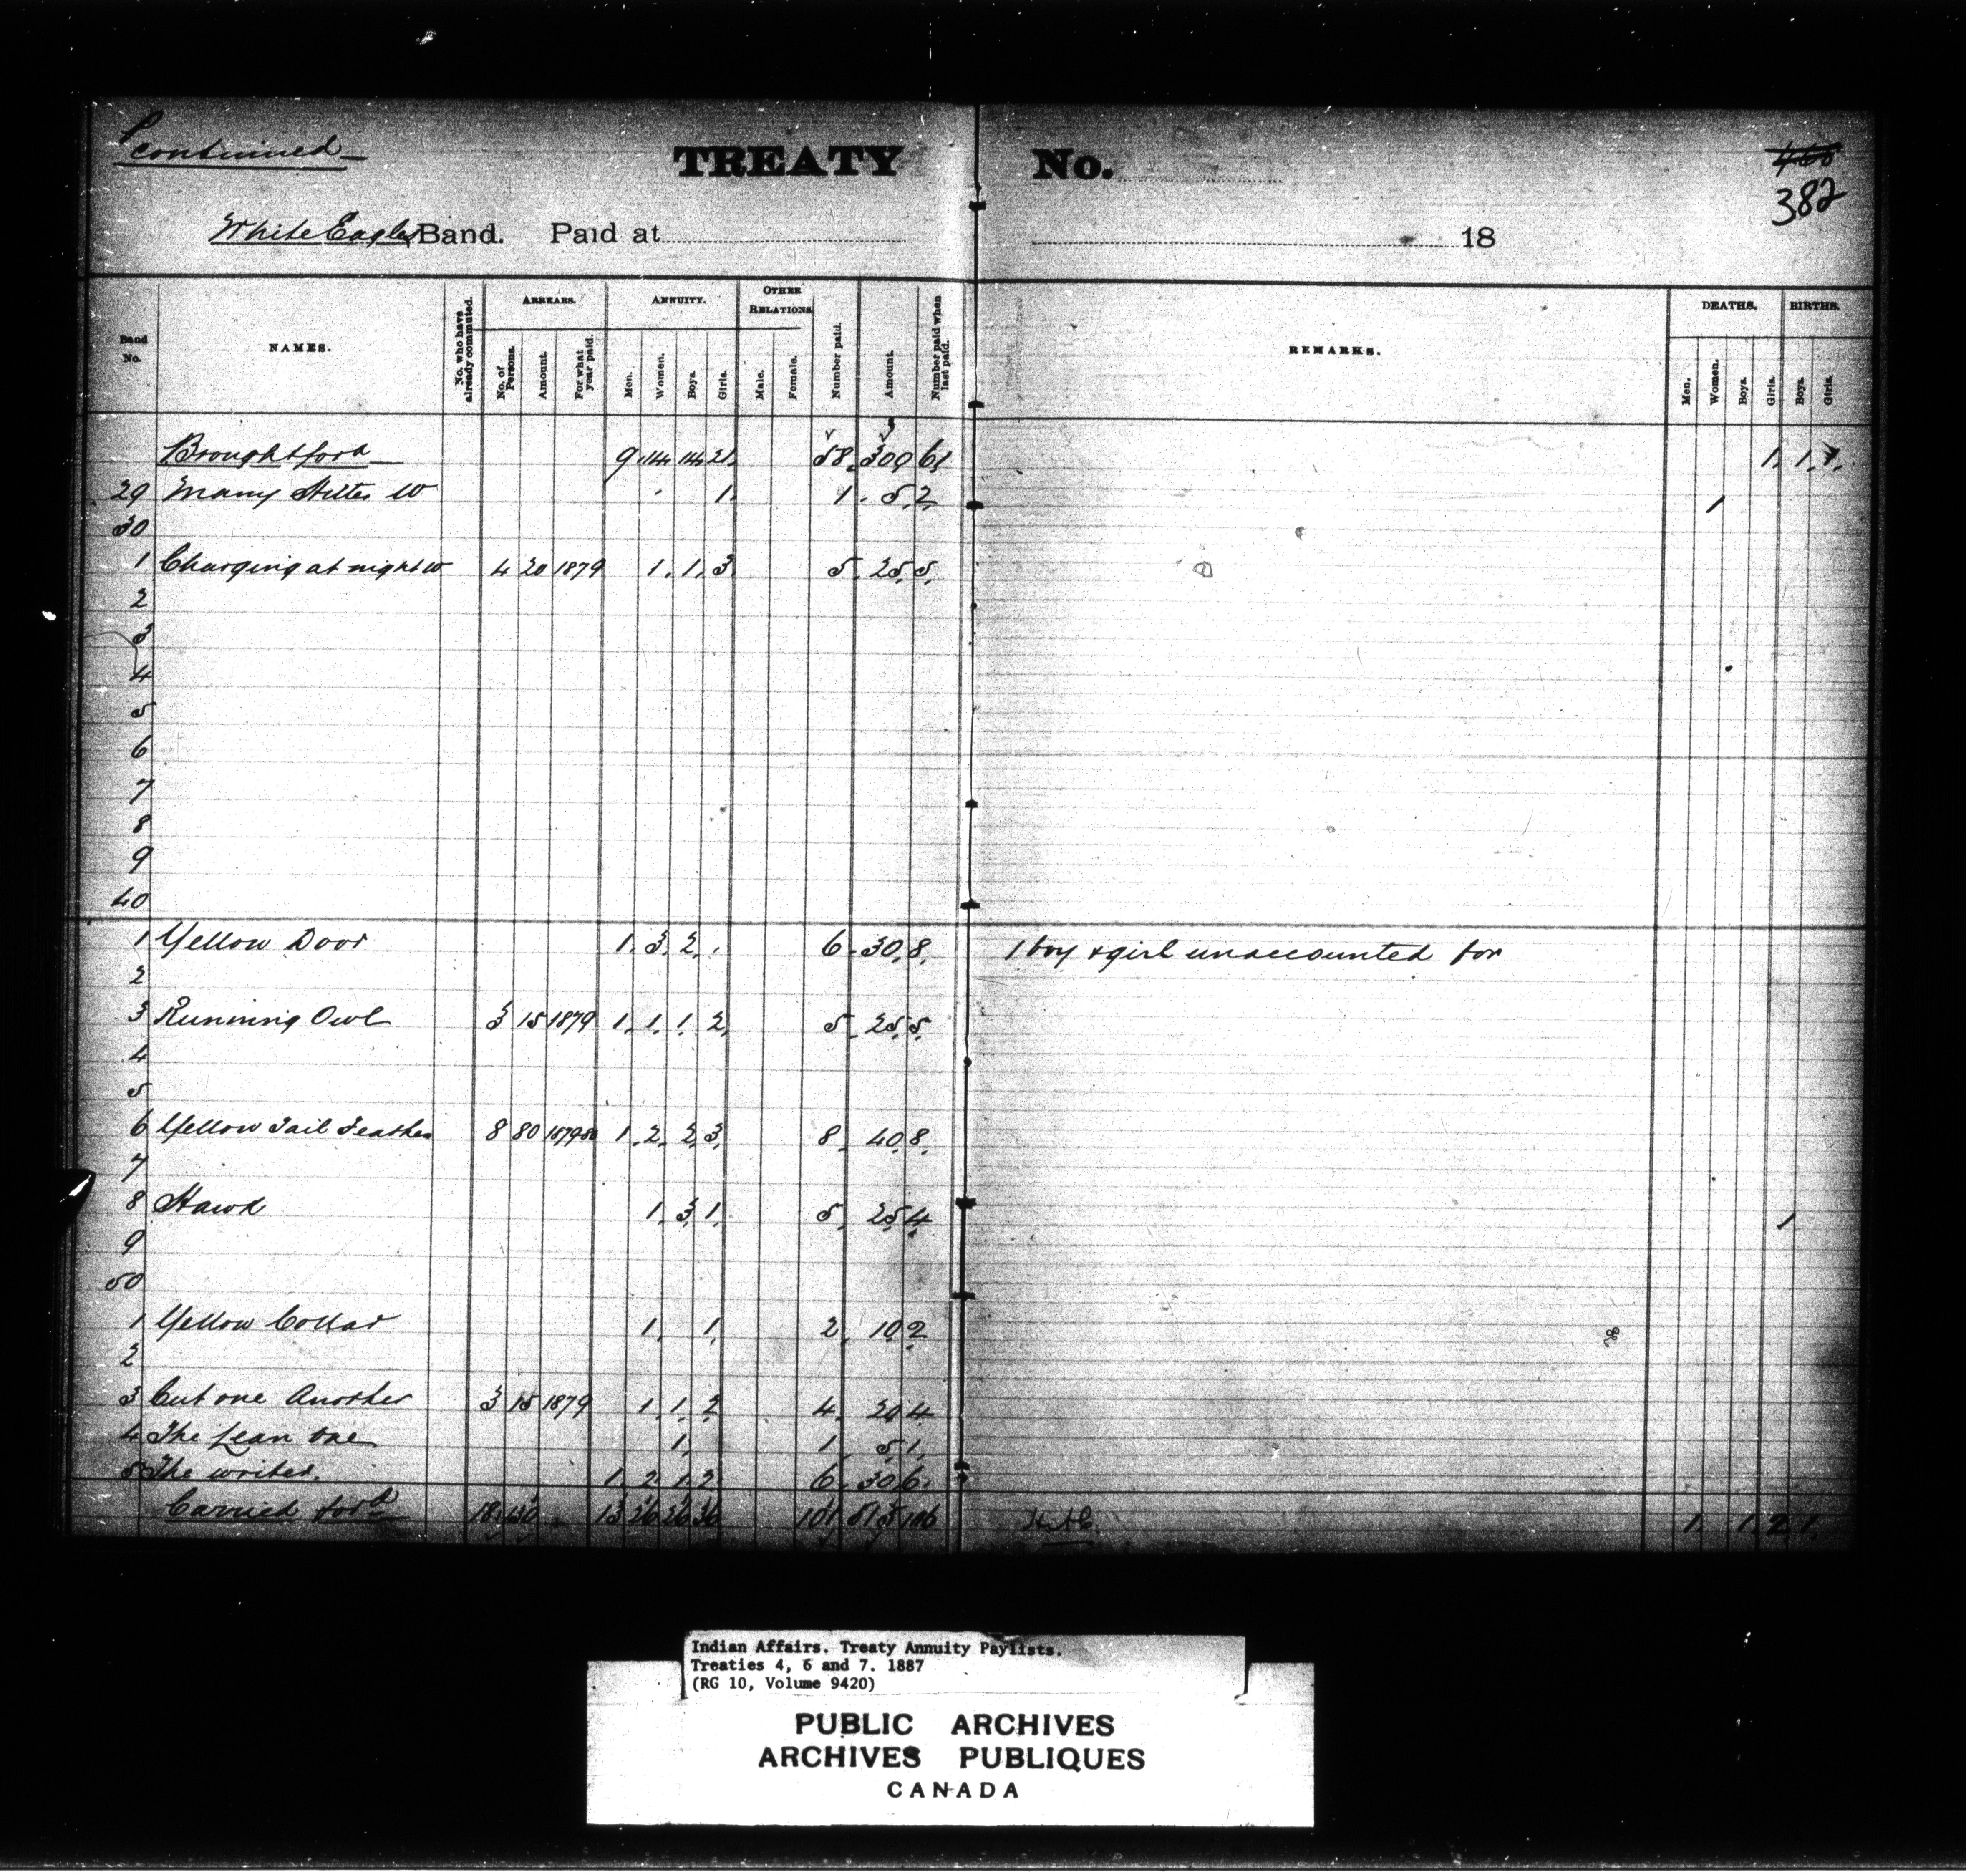 continued
TREATY No.
460
382
White Eagles Band. Paid at 18
Band No. NAMES. No. who have already commuted. ARREARS. No. of Persons. Amount. For what year paid. ANNUITY. Men. Women. Boys. Girls. OTHER RELATIONS. Male. Female. Number paid. Amount. Number paid when last paid. REMARKS. DEATHS. Men. Women. Boys. Girls. BIRTHS. Boys. Girls.
Brought ford 9 14 14 21 58 309 61 1 1 1
29 Many W 1 1 5 2 1
30
1 Charging at night W 4 20 1879 1 1 3 5 25 5
2
3
4
5
6
7
8
9
40
1 Yellow Door 1 3 2 6 30 8 1 boy & girl unaccounted for
2
3 Running Owl 3 15 1879 1 1 1 2 5 25 5
4
5
6 Yellow Tail Feather 8 80 1879 80 1 2 2 3 8 40 8
7
8 Hawk 1 3 1 5 25 4 1
9
50
1 Yellow Collar 1 1 2 10 2
2
3 Cut one Another 3 15 1879 1 1 2 4 20 4
4 The Lean one 1 1 5 1
5 The writer 1 2 1 2 6 30 6
Carried ford 18 130 13 26 26 36 101 515 106 1 1 2 1
Indian Affairs. Treaty Annuity Paylists.
Treaties 4, 6 and 7. 1887
(RG 10, Volume 9420)
PUBLIC ARCHIVES
ARCHIVES PUBLIQUES
CANADA